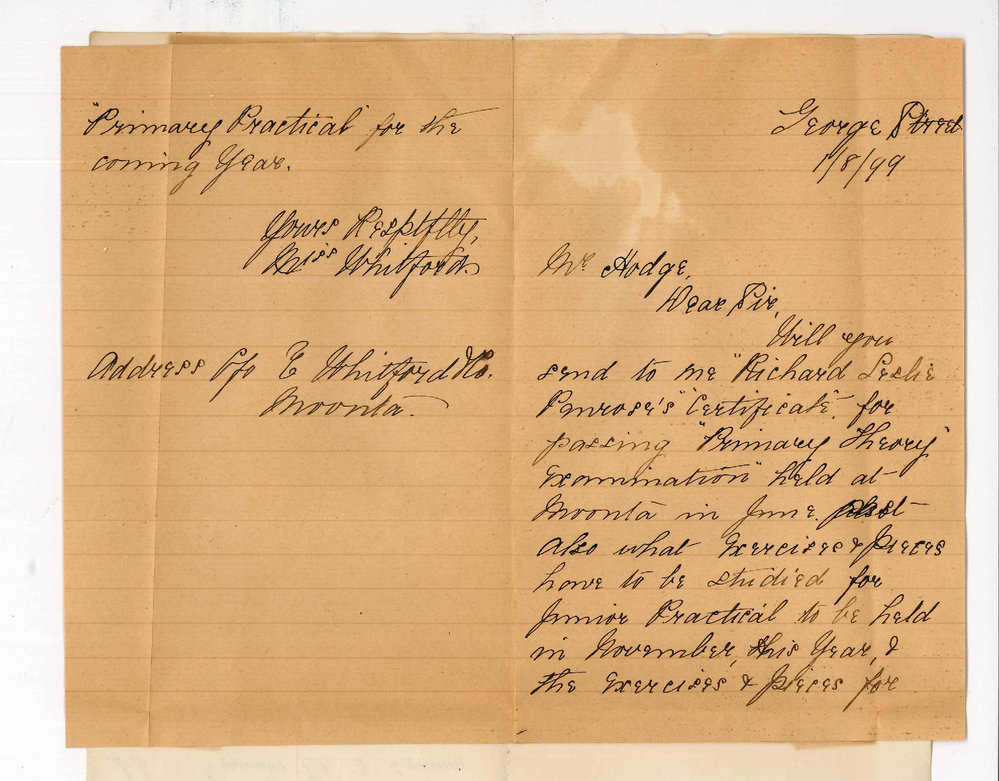 George Street
1/8/99
Mr Hodge,
Dear Sir,
Will you
send to me "Richard Leslie
Penrose's" "Certificate" for
passing "Primary Theory"
Examination" held at
Moonta in June past
Also what Exercises & Pieces
have to be studied for
Junior Practical to be held
in November, this Year, &
the Exercises & Pieces for
"Primary Practical" for the
coming Year.
Yours Respectflly,
Miss Whitford.
Address C/o E Whitford
Moonta.